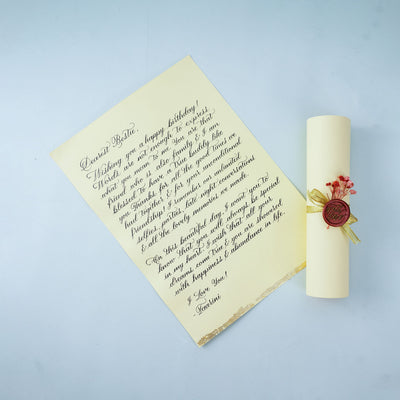 Dearest Bestie,
Wishing you a happy birthday!
Words are not enough to express
what you mean to me. You are that
friend who is also family & I am
blessed to have a true buddy like
you. Thanks for all the good times we
had together & for your unconditional
friendship. I remember our unlimited
selfies, parties, late night conversations
& all the lovely memories we made.
On this beautiful day, I want you to
know that you will always be special
in my heart. I wish that all your
dreams come true & you are showered
with happiness & abundance in life.
I Love You!